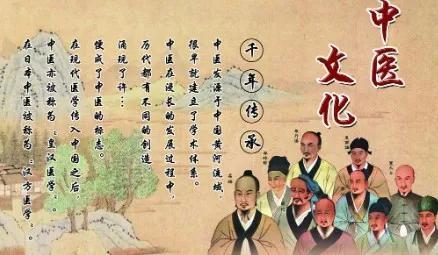 中医
文化
千年传承
中医发源于中国黄河流域，
很早就建立了学术体系。
中医在漫长的发展过程中，
历代都有不同的创造，
涌现了许…
便成了中医的标志。
在现代医学传入中国之后，
中医亦被称为：皇汉医学：。
在日本中医被称为：汉方医学：。